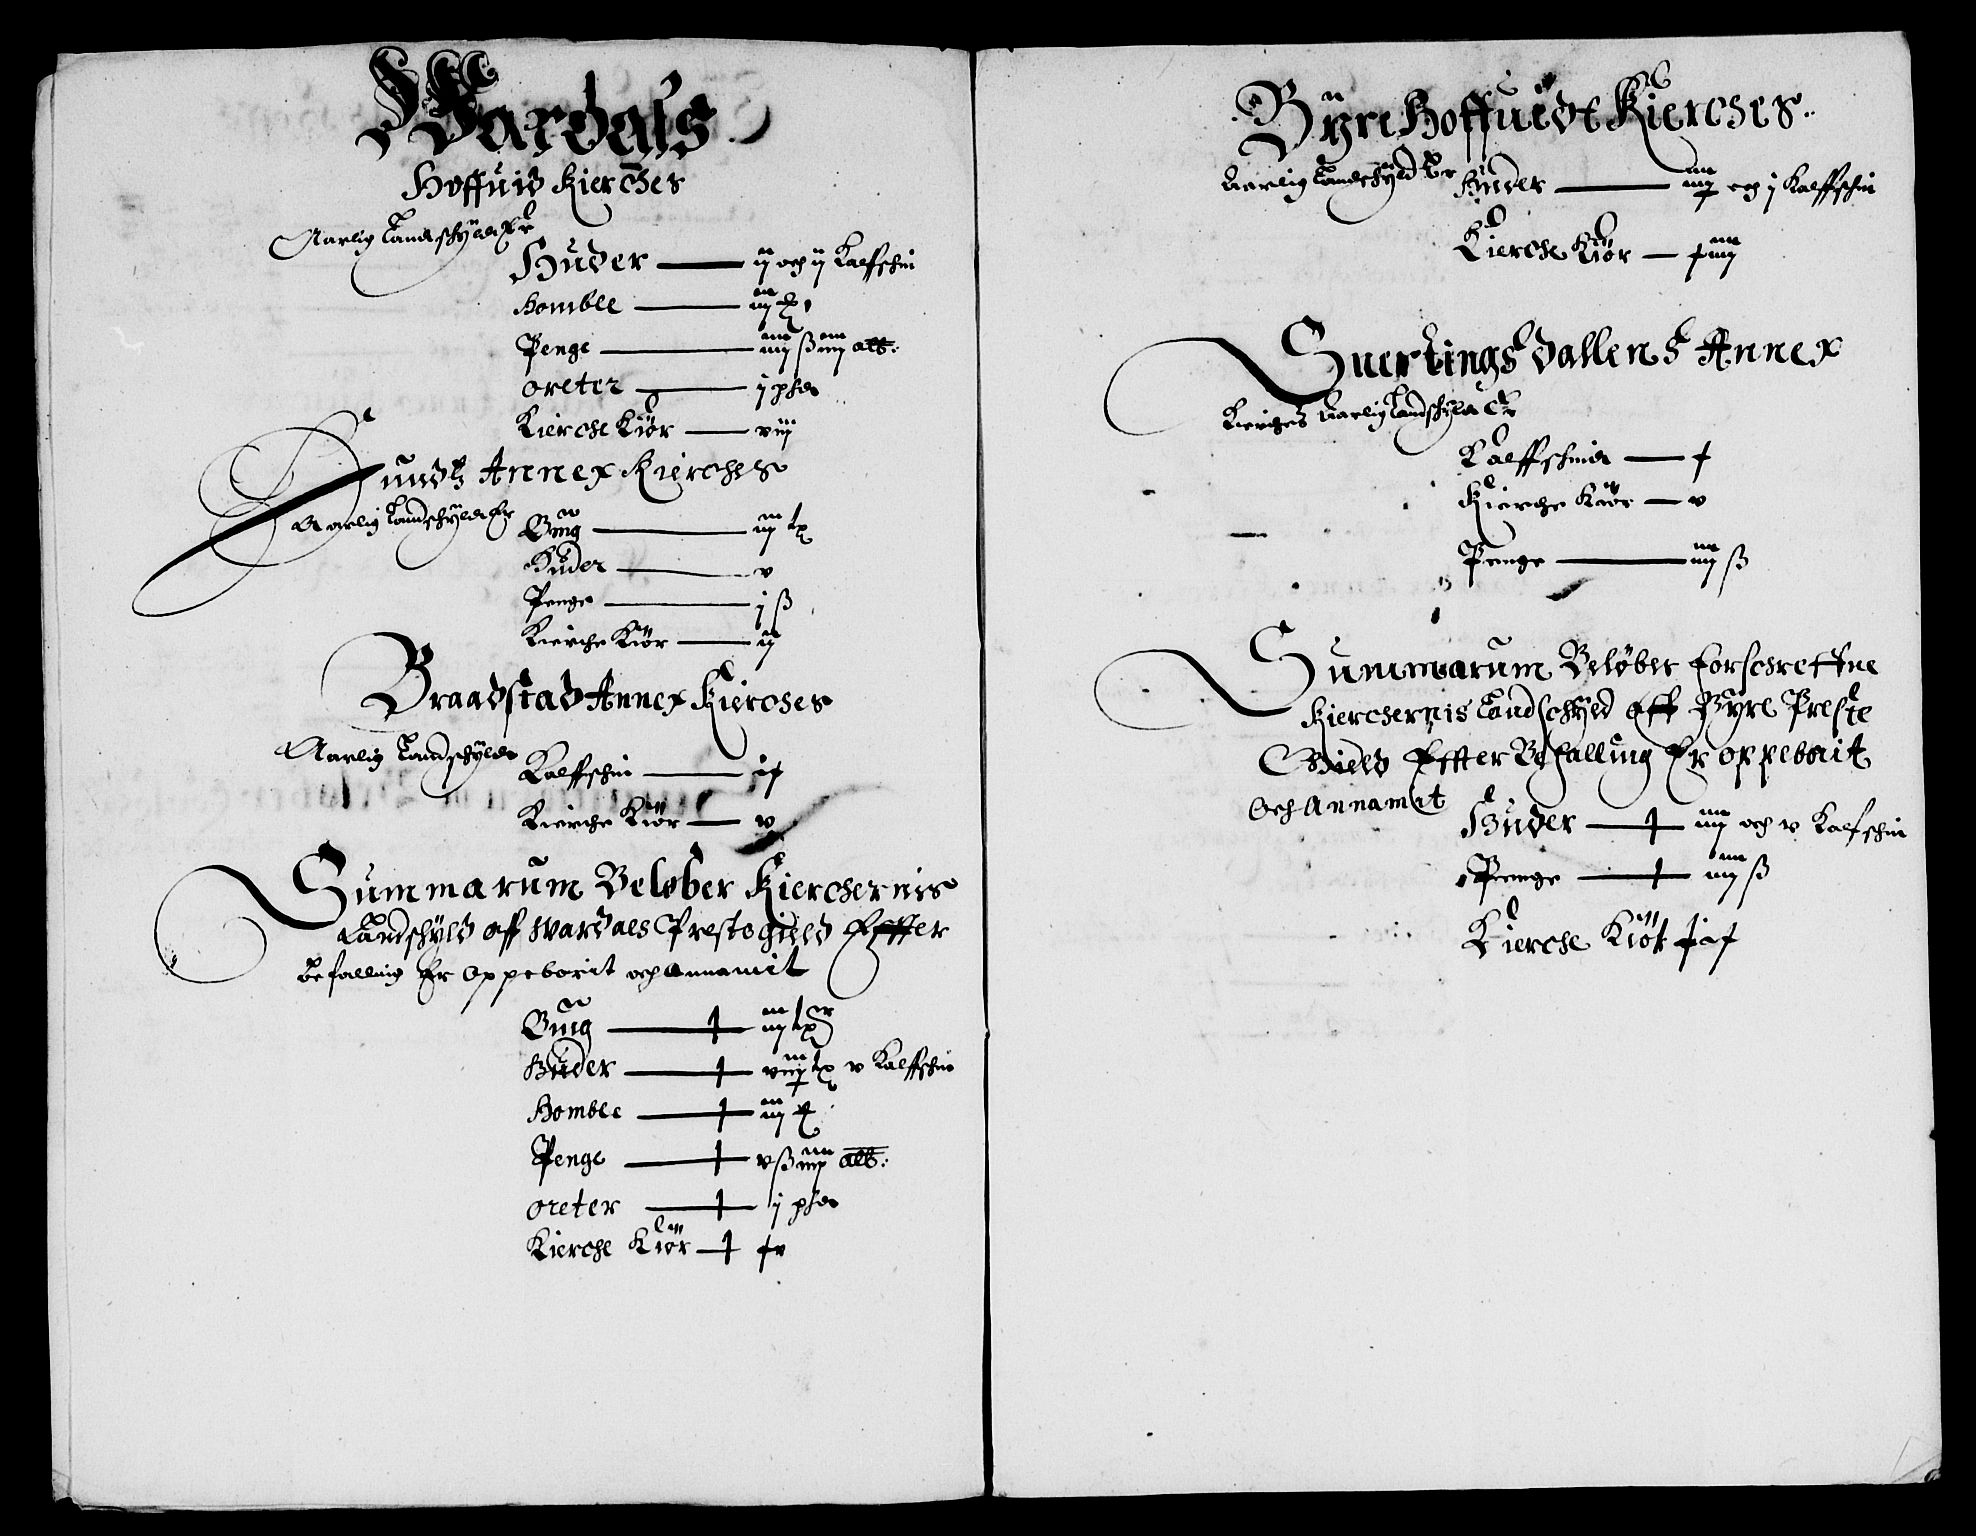 Wardals
Hoffuid Kierches
Aarlig Landschyld Er
Huder — ij och ij Kalfschin
Homble — iij
Penge — iiij ß iiij alb:
oreter — j phd
Kierche Kiør — viij
Hunds Annex Kierches
Aarlig Landschyld Er
Bÿg — iij tr
Huder — v
Penge — j ß
Kierche Kiør — ij
Braadstad Annex Kierches
Aarlig Landschyld
Kalffschin — ix
Kierche Kiør — v
Summarum Beløber Kierchernis
Landschyld aff Wardals Prestegield Effter
befalling Er Oppeborit och Annamit
Bÿg — iij tr
Huder — v Kalffschin
Homble — iij
Penge — v ß iiij alb:
oreter — j phd
Kierche Kiør — xv
Byre Hoffuidt Kierches
Aarlig Landschyld Er Huder — och j Kalffschin
Kierche Kiør — xiiij
Snertingsdallens Annex
Kierches Aarlig Landschyld Er
Kalffschind — x
Kierche Kiør — v
Penge — iiij ß
Summarum Beløber forschreffne
Kierchernis Landschyld Aff Byre Preste
Gield Effter Befalling Er oppebarit
Och Annamit
Huder — iiij och v Kalfschin
Penge — iiij ß
Kierche Kiør xix